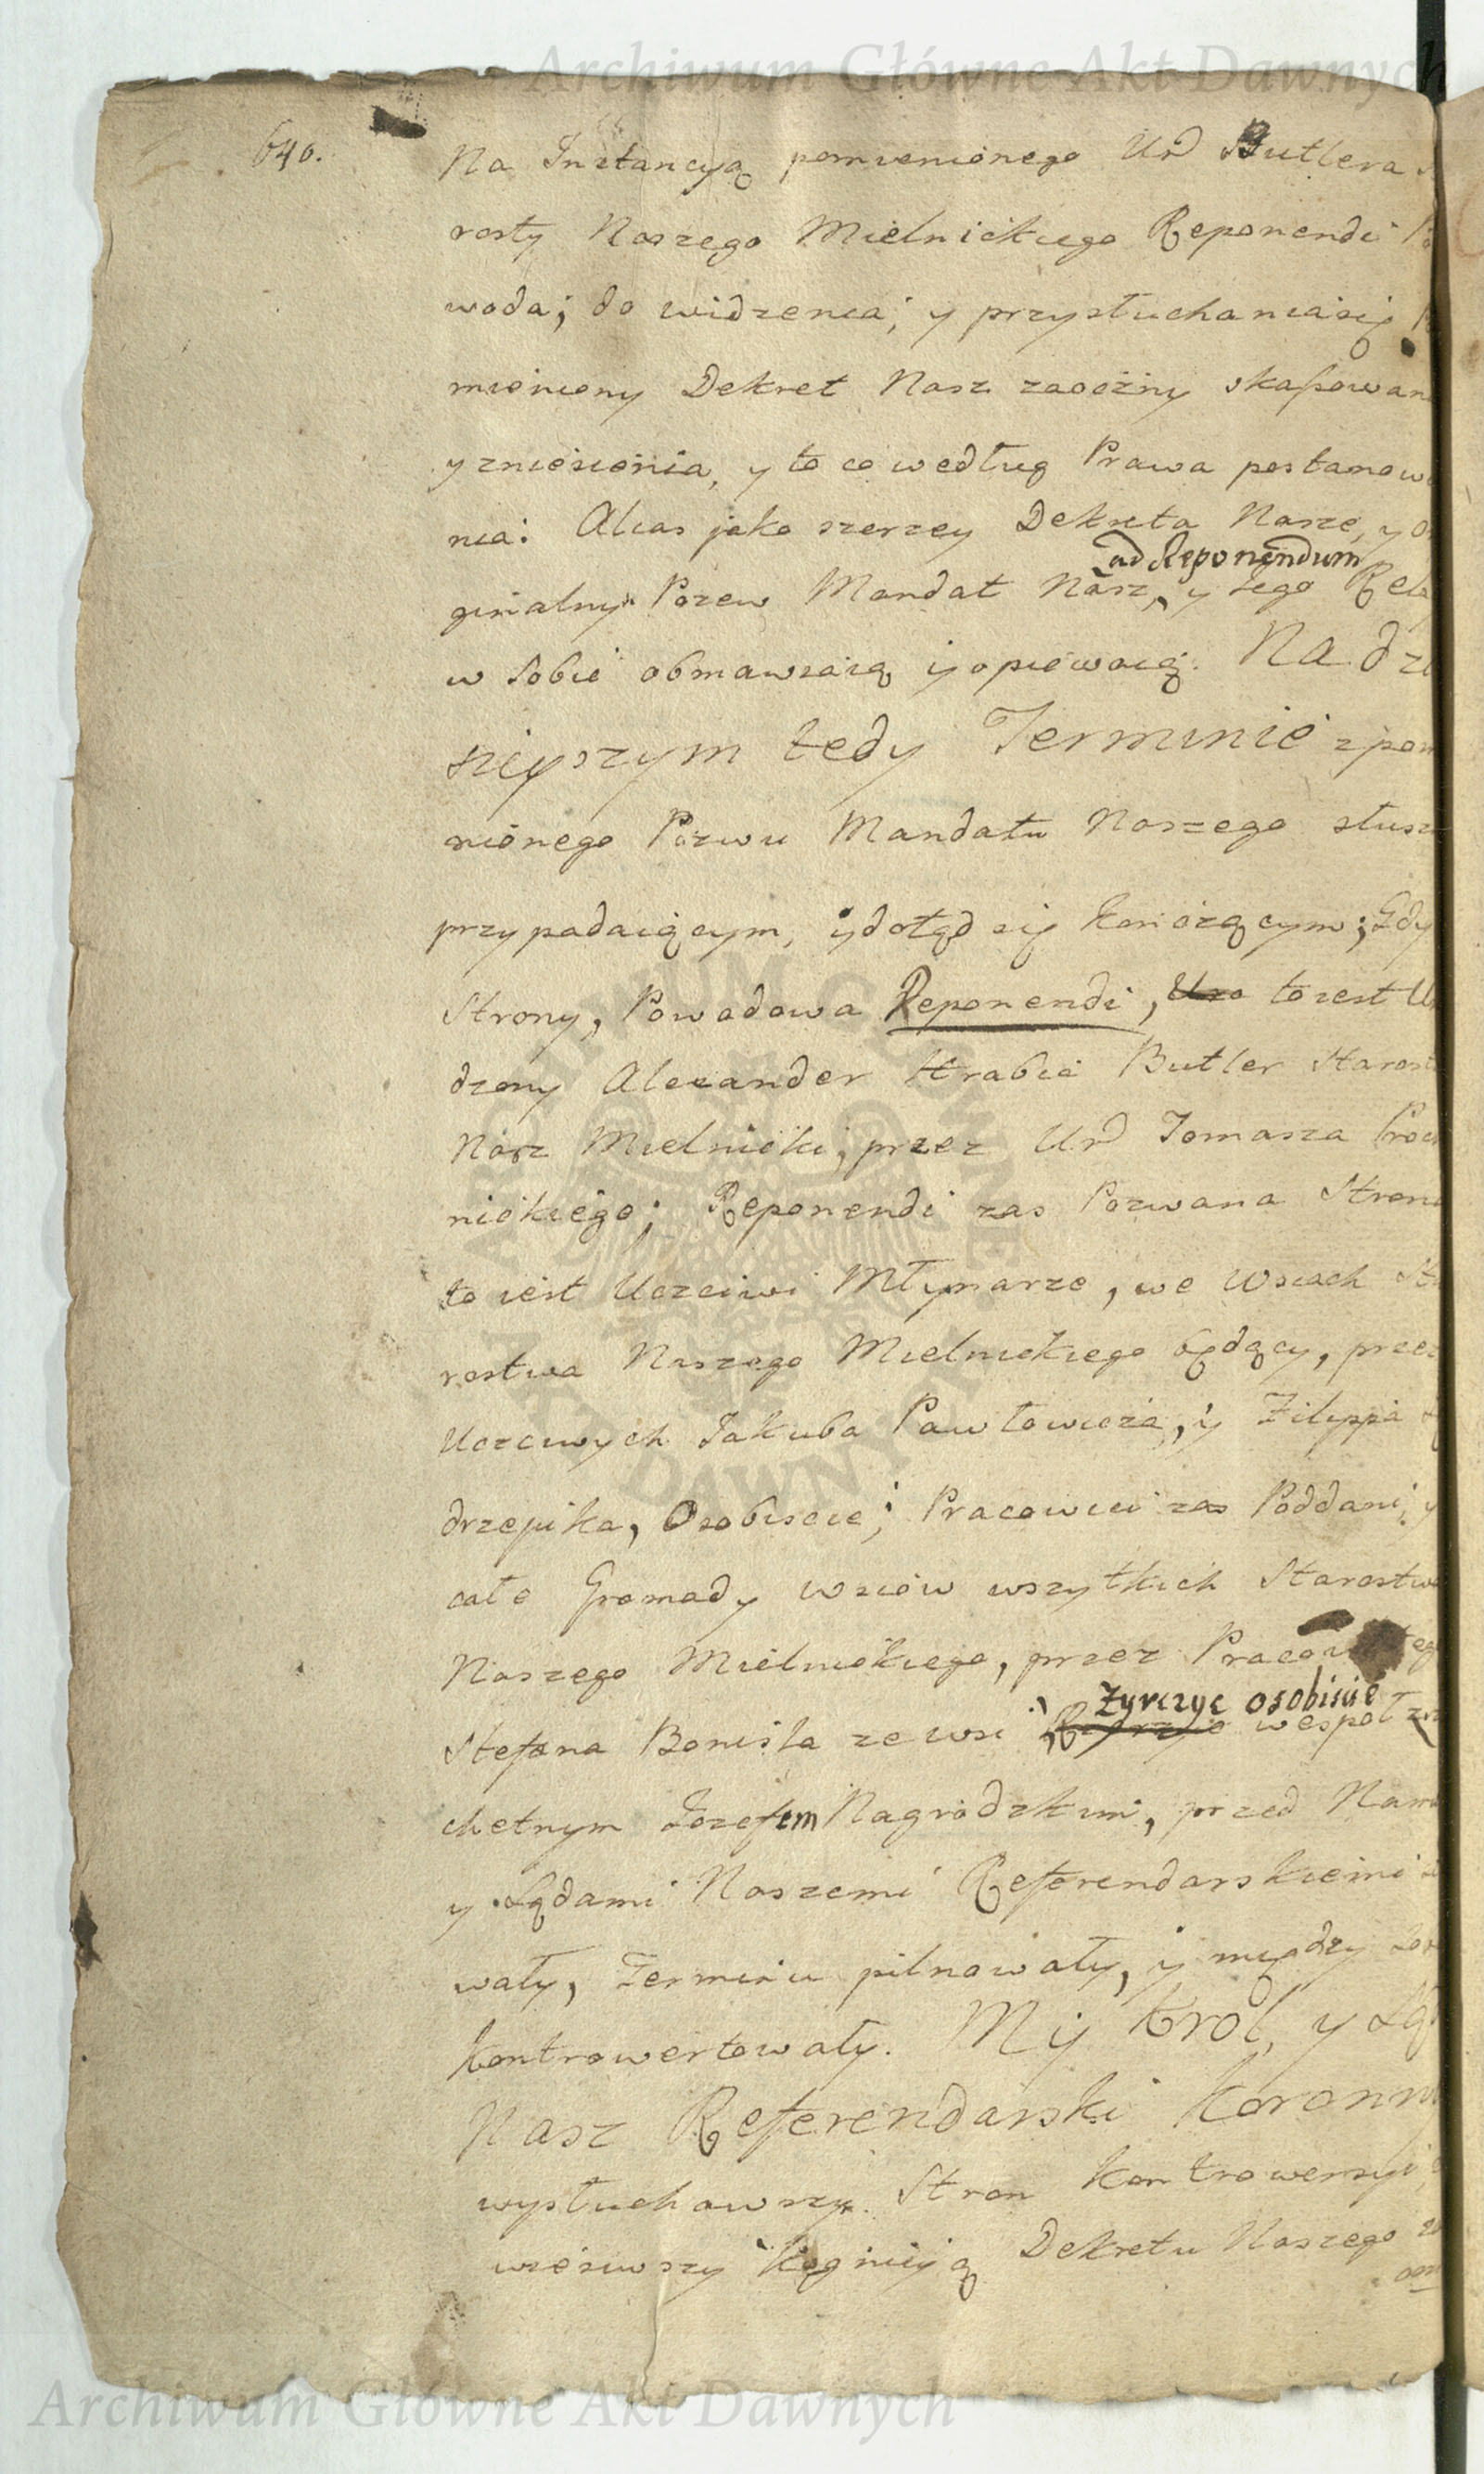 Archiwum Główne Akt Dawnych
640.
Na Instancyą pomienionego Ur Butlera S
rosty Naszego Mielnickiego Reponendi Po
woda; do widzenia; y przysłuchania się
mieniony Dekret Nasz zaoczny skassowan
y zniesienia, y to co według Prawa postanowi
nia: Alias jako szerzey Dekreta Nasze, y Or
ad Reponendum
ginalny Pozew Mandat Nasz, y Jego Rela
w Sobie obmawiaią y opiewaią. Na dzi
sieyszym tedy Terminie z pom
nionego Pozwu Mandatu Naszego słusz
przypadaiącym, y dotąd się kończącym; Gdy
Strony, Powodowa Reponendi, Uro to iest Ur
dzony Alexander Hrabia Butler Starost
Nasz Mielnicki, przez Ur Tomasza
nickiego; Reponendi zas Pozwana Strona
to iest Uczciwi Młynarze, we Wsiach Sta
rostwa Naszego Mielnickiego będący, przez
Uczciwych Jakuba Pawłowicza, y Filippa
drzejika, Osobiscie; Pracowici zas Poddani, y
całe Gromady wsiów wszytkich Starostwa
Naszego Mielnickiego, przez Pracowitego
Żyrczyc osobiscie
Stefana Bonisła ze wsi wespoł z
chetnym Jozefem Nagrodzkim, przed Nami
y Sądami Naszemi Referendarskiemi
wały, Terminu pilnowały, y między sob
kontrowertowały. My Krol, y Są
Nasz Referendarski Koronny
wysłuchawszy Stron kontrowersyi
wziewszy Kognicyą Dekretu Naszego
ARCHIWUM GŁÓWNE AKT DAWNYCH
Archiwum Główne Akt Dawnych